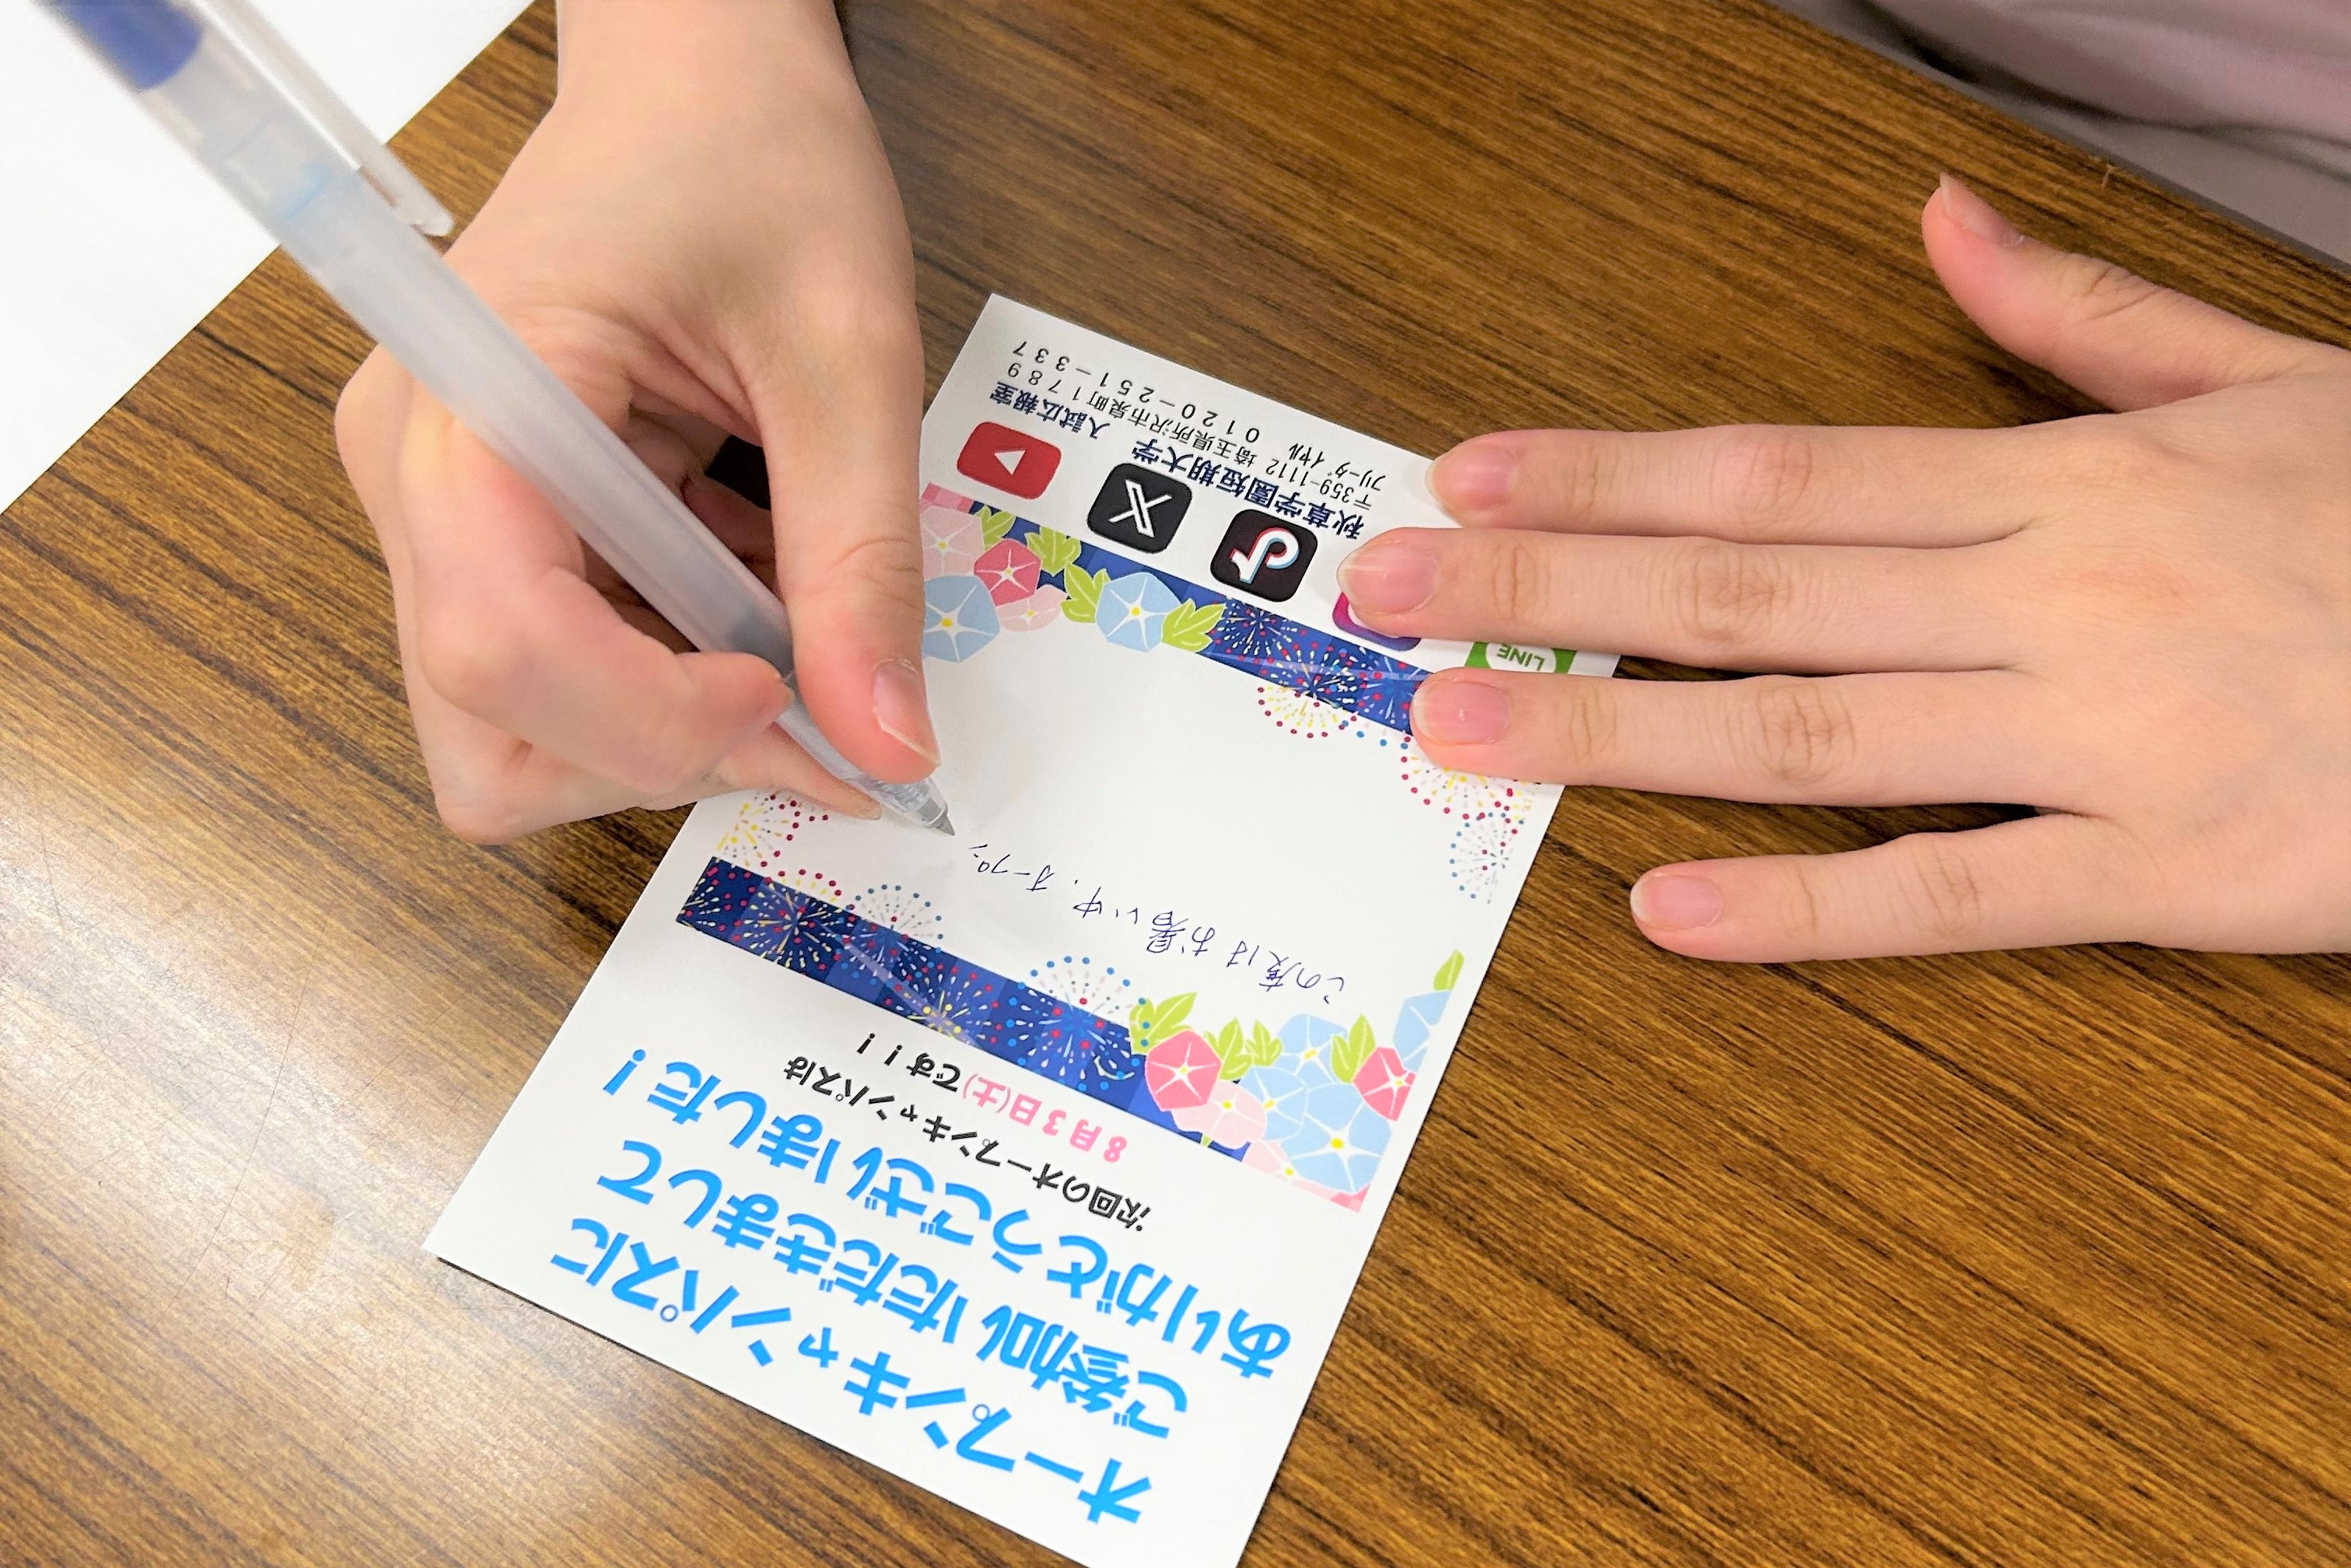 オープンキャンパスに
ご参加いただきまして
ありがとうございました！
次回のオープンキャンパスは
8月3日(土)です！！
この度はお暑い中、オープン
LINE
秋草学園短期大学 入試広報室
〒359-1112 埼玉県所沢市泉町1789
フリーダイヤル 0120-251-337